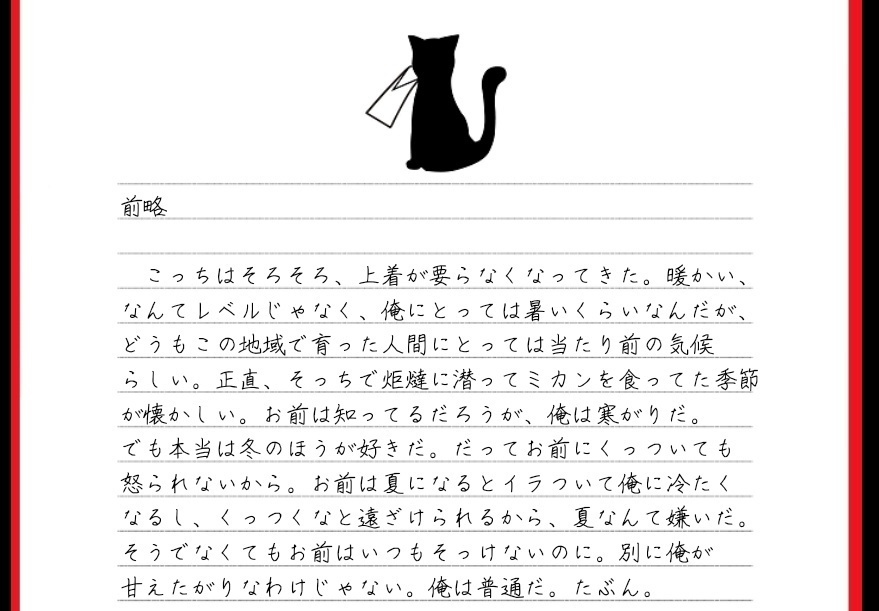 前略
こっちはそろそろ、上着が要らなくなってきた。暖かい、
なんてレベルじゃなく、俺にとっては暑いくらいなんだが、
どうもこの地域で育った人間にとっては当たり前の気候
らしい。正直、そっちで炬燵に潜ってミカンを食ってた季節
が懐かしい。お前は知ってるだろうが、俺は寒がりだ。
でも本当は冬のほうが好きだ。だってお前にくっついても
怒られないから。お前は夏になるとイラついて俺に冷たく
なるし、くっつくなと遠ざけられるから、夏なんて嫌いだ。
そうでなくてもお前はいつもそっけないのに。別に俺が
甘えたがりなわけじゃない。俺は普通だ。たぶん。